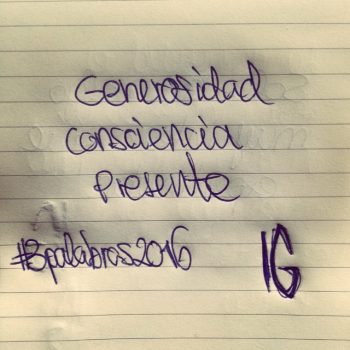 Generosidad
consciencia
presente
#3palabras2016
IG